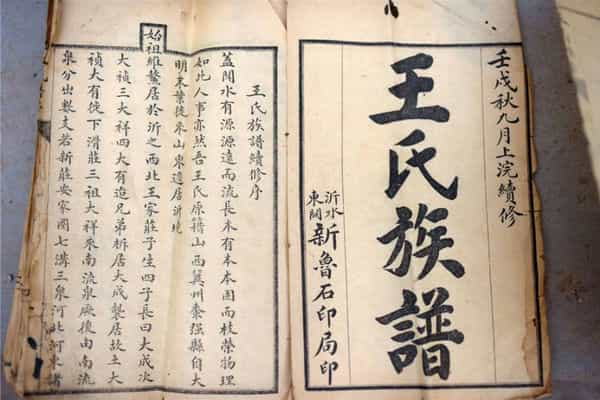 壬戌秋九月上浣續修
王氏族譜
沂水東関新魯石印局印
王氏族譜續修序
蓋聞水有源源遠而流長木有本本固而枝榮物理
如此人事亦然吾王氏原籍山西冀州棗强縣自大
明末葉徙來山東遂居沂境
始祖維鰲居於沂之西北王家莊子生四子長曰大成次
大禎三大祥四大有迨兄弟析居大成襲居故土大
禎大有徙下滑莊三祖大祥來南流泉厥後由南流
泉分出數支若新莊安家圈七溝三泉河北河東諸